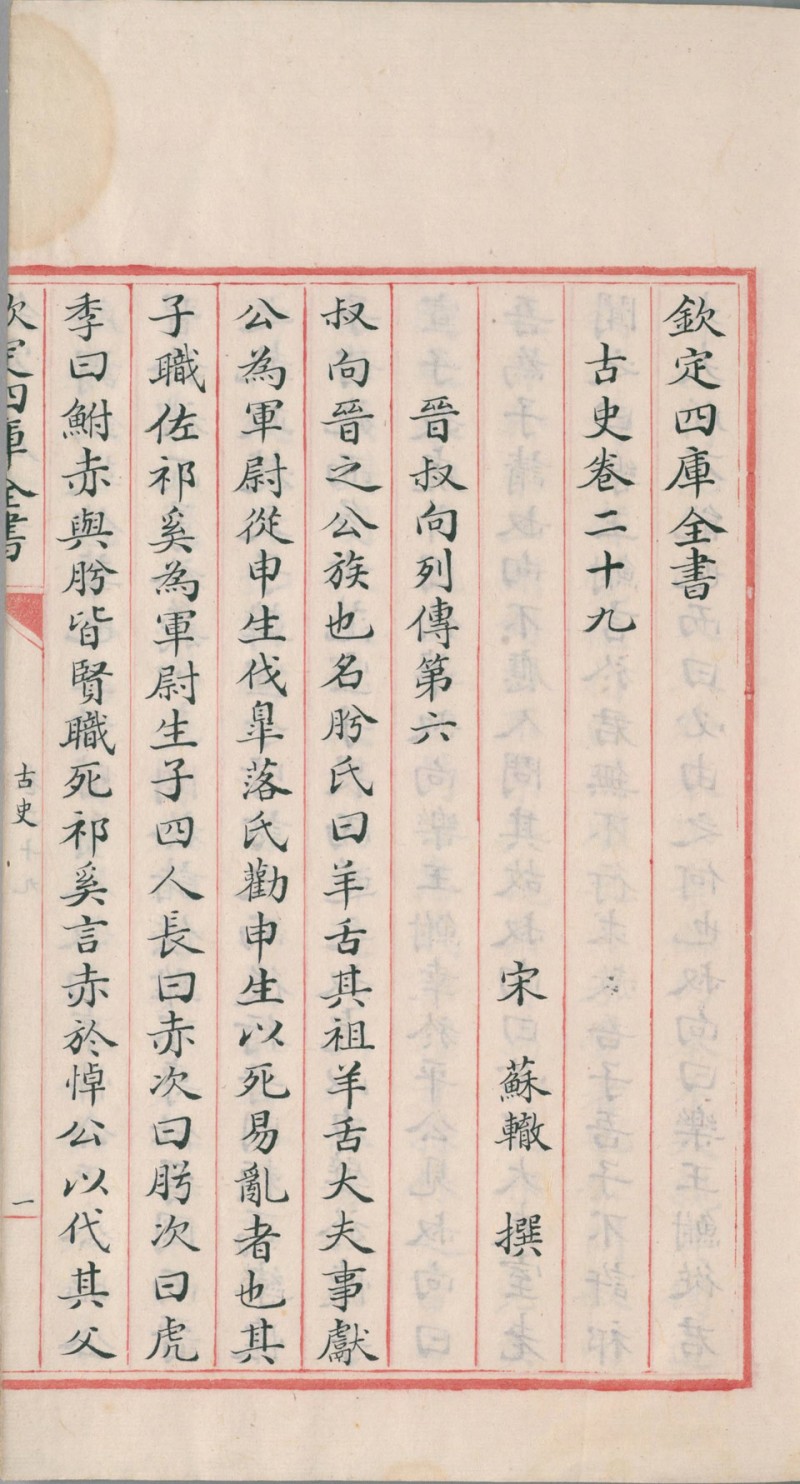 欽定四庫全書
古史卷二十九
宋 蘇轍 撰
晉叔向列傳第六
叔向晉之公族也名肸氏曰羊舌其祖羊舌大夫事獻
公為軍尉從申生伐臯落氏勸申生以死易亂者也其
子職佐祁奚為軍尉生子四人長曰赤次曰肸次曰虎
季曰鮒赤與肸皆賢職死祁奚言赤於悼公以代其父
欽定四庫全書
古史
一